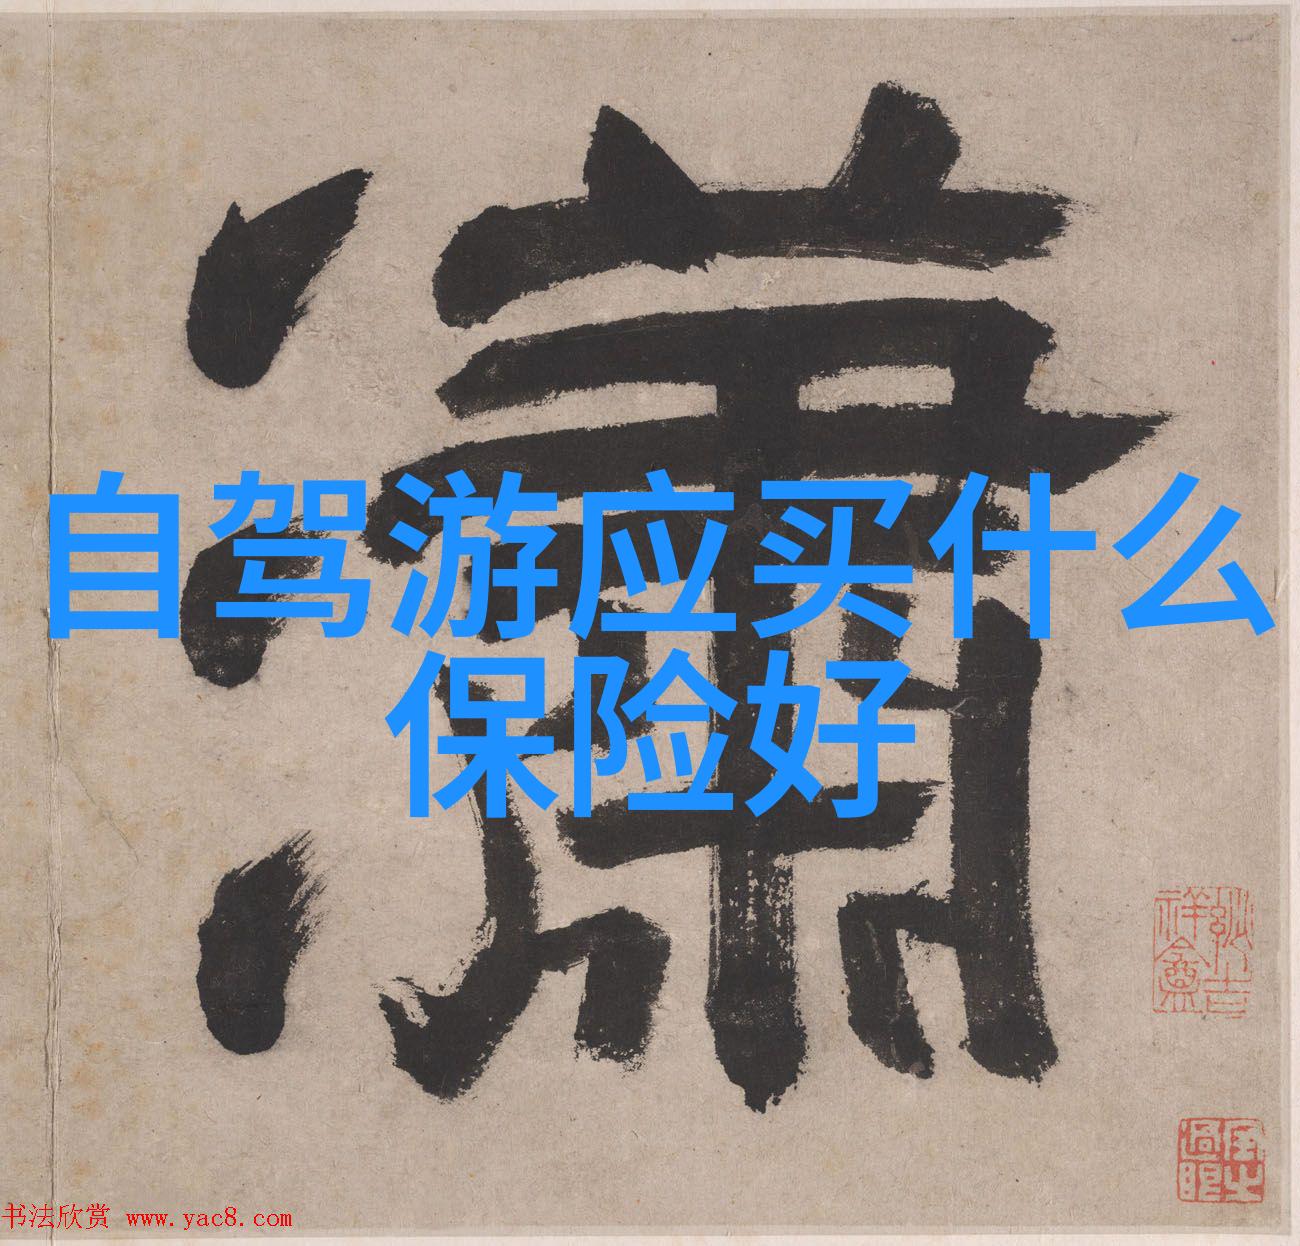 潇
自驾游应买什么
保险好
书法欣赏 www.yac8.com